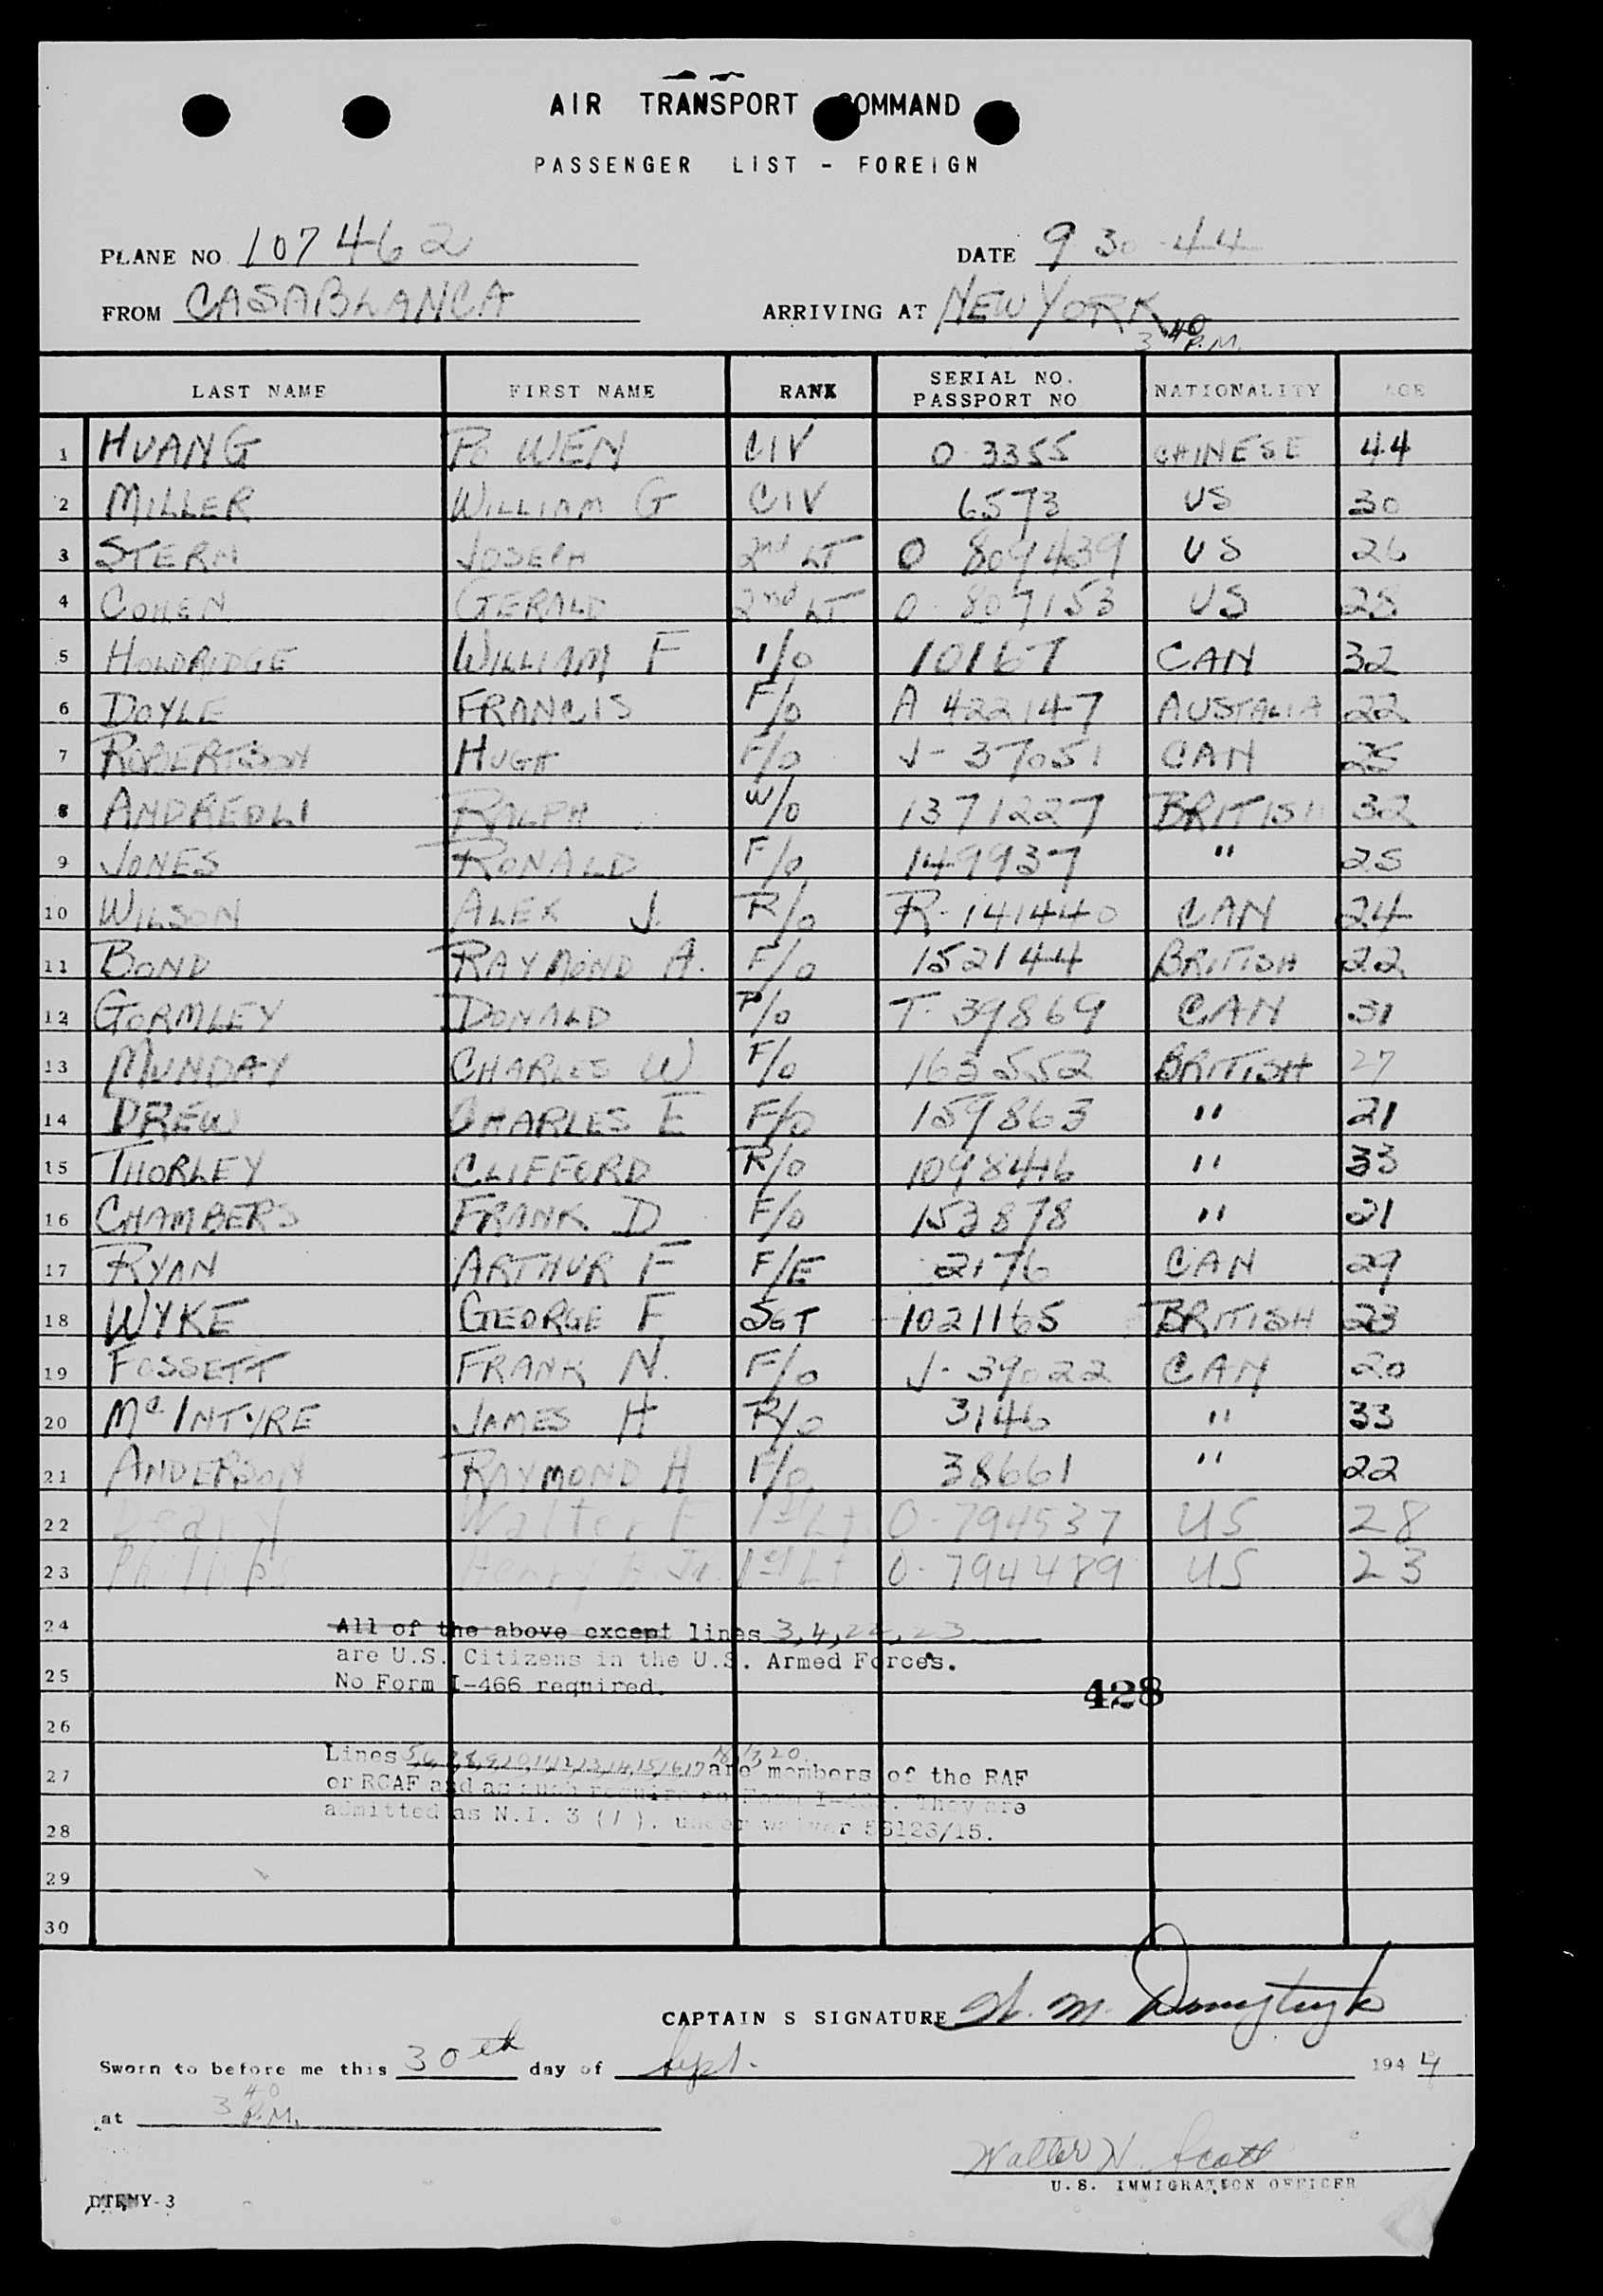 AIR TRANSPORT COMMAND
PASSENGER LIST - FOREIGN
PLANE NO 107462 DATE 9 30-44
FROM CASABLANCA ARRIVING AT NEW YORK
3 40 P.M.
LAST NAME FIRST NAME RANK SERIAL NO. PASSPORT NO NATIONALITY AGE
1 HUANG PO WEN CIV O-3355 CHINESE 44
2 MILLER WILLIAM G CIV 6573 US 30
3 STERN JOSEPH 2nd LT O 809439 US 26
4 COHEN GERALD 2nd LT O-807153 US 28
5 HOLDRIDGE WILLIAM F 1/0 10167 CAN 32
6 DOYLE FRANCIS F/O A 422147 AUSTALIA 22
7 ROBERTSON HUGH F/O J-37051 CAN 25
8 ANDREOLI RALPH W/O 1371227 BRITISH 32
9 JONES RONALD F/O 149937 " 25
10 WILSON ALEX J. R/O R-141440 CAN 24
11 BOND RAYMOND A. F/O 152144 BRITISH 22
12 GORMLEY DONALD P/O T-39869 CAN 31
13 MUNDAY CHARLES W F/O 163552 BRITISH 27
14 DREW CHARLES E F/O 159863 " 21
15 THORLEY CLIFFORD R/O 1098446 " 33
16 CHAMBERS FRANK D F/O 153878 " 21
17 RYAN ARTHUR F F/E 2176 CAN 29
18 WYKE GEORGE F SGT 1021165 BRITISH 23
19 FOSSETT FRANK N. F/O J-39022 CAN 20
20 McINTYRE JAMES H R/O 3146 " 33
21 ANDERSON RAYMOND H F/O 38661 " 22
22 Deary Walter F 1st Lt O-794537 US 28
23 Phillips Henry B. Jr. 1st Lt O-794489 US 23
24 All of the above except lines 3,4,22,23
are U.S. Citizens in the U.S. Armed Forces.
25 No Form I-466 required.
428
26
Lines 5,6,7,8,9,10,11,12,13,14,15,16,17 18,19,20 are members of the RAF
27 or RCAF and as such require no Form I-466. They are
admitted as N.I. 3 (1). under waiver
28
29
30
CAPTAIN S SIGNATURE
Sworn to before me this 30th day of Sept. 1944
at 3 40 P.M.
Walter N. Scott
U.S. IMMIGRATION OFFICER
DTENY-3